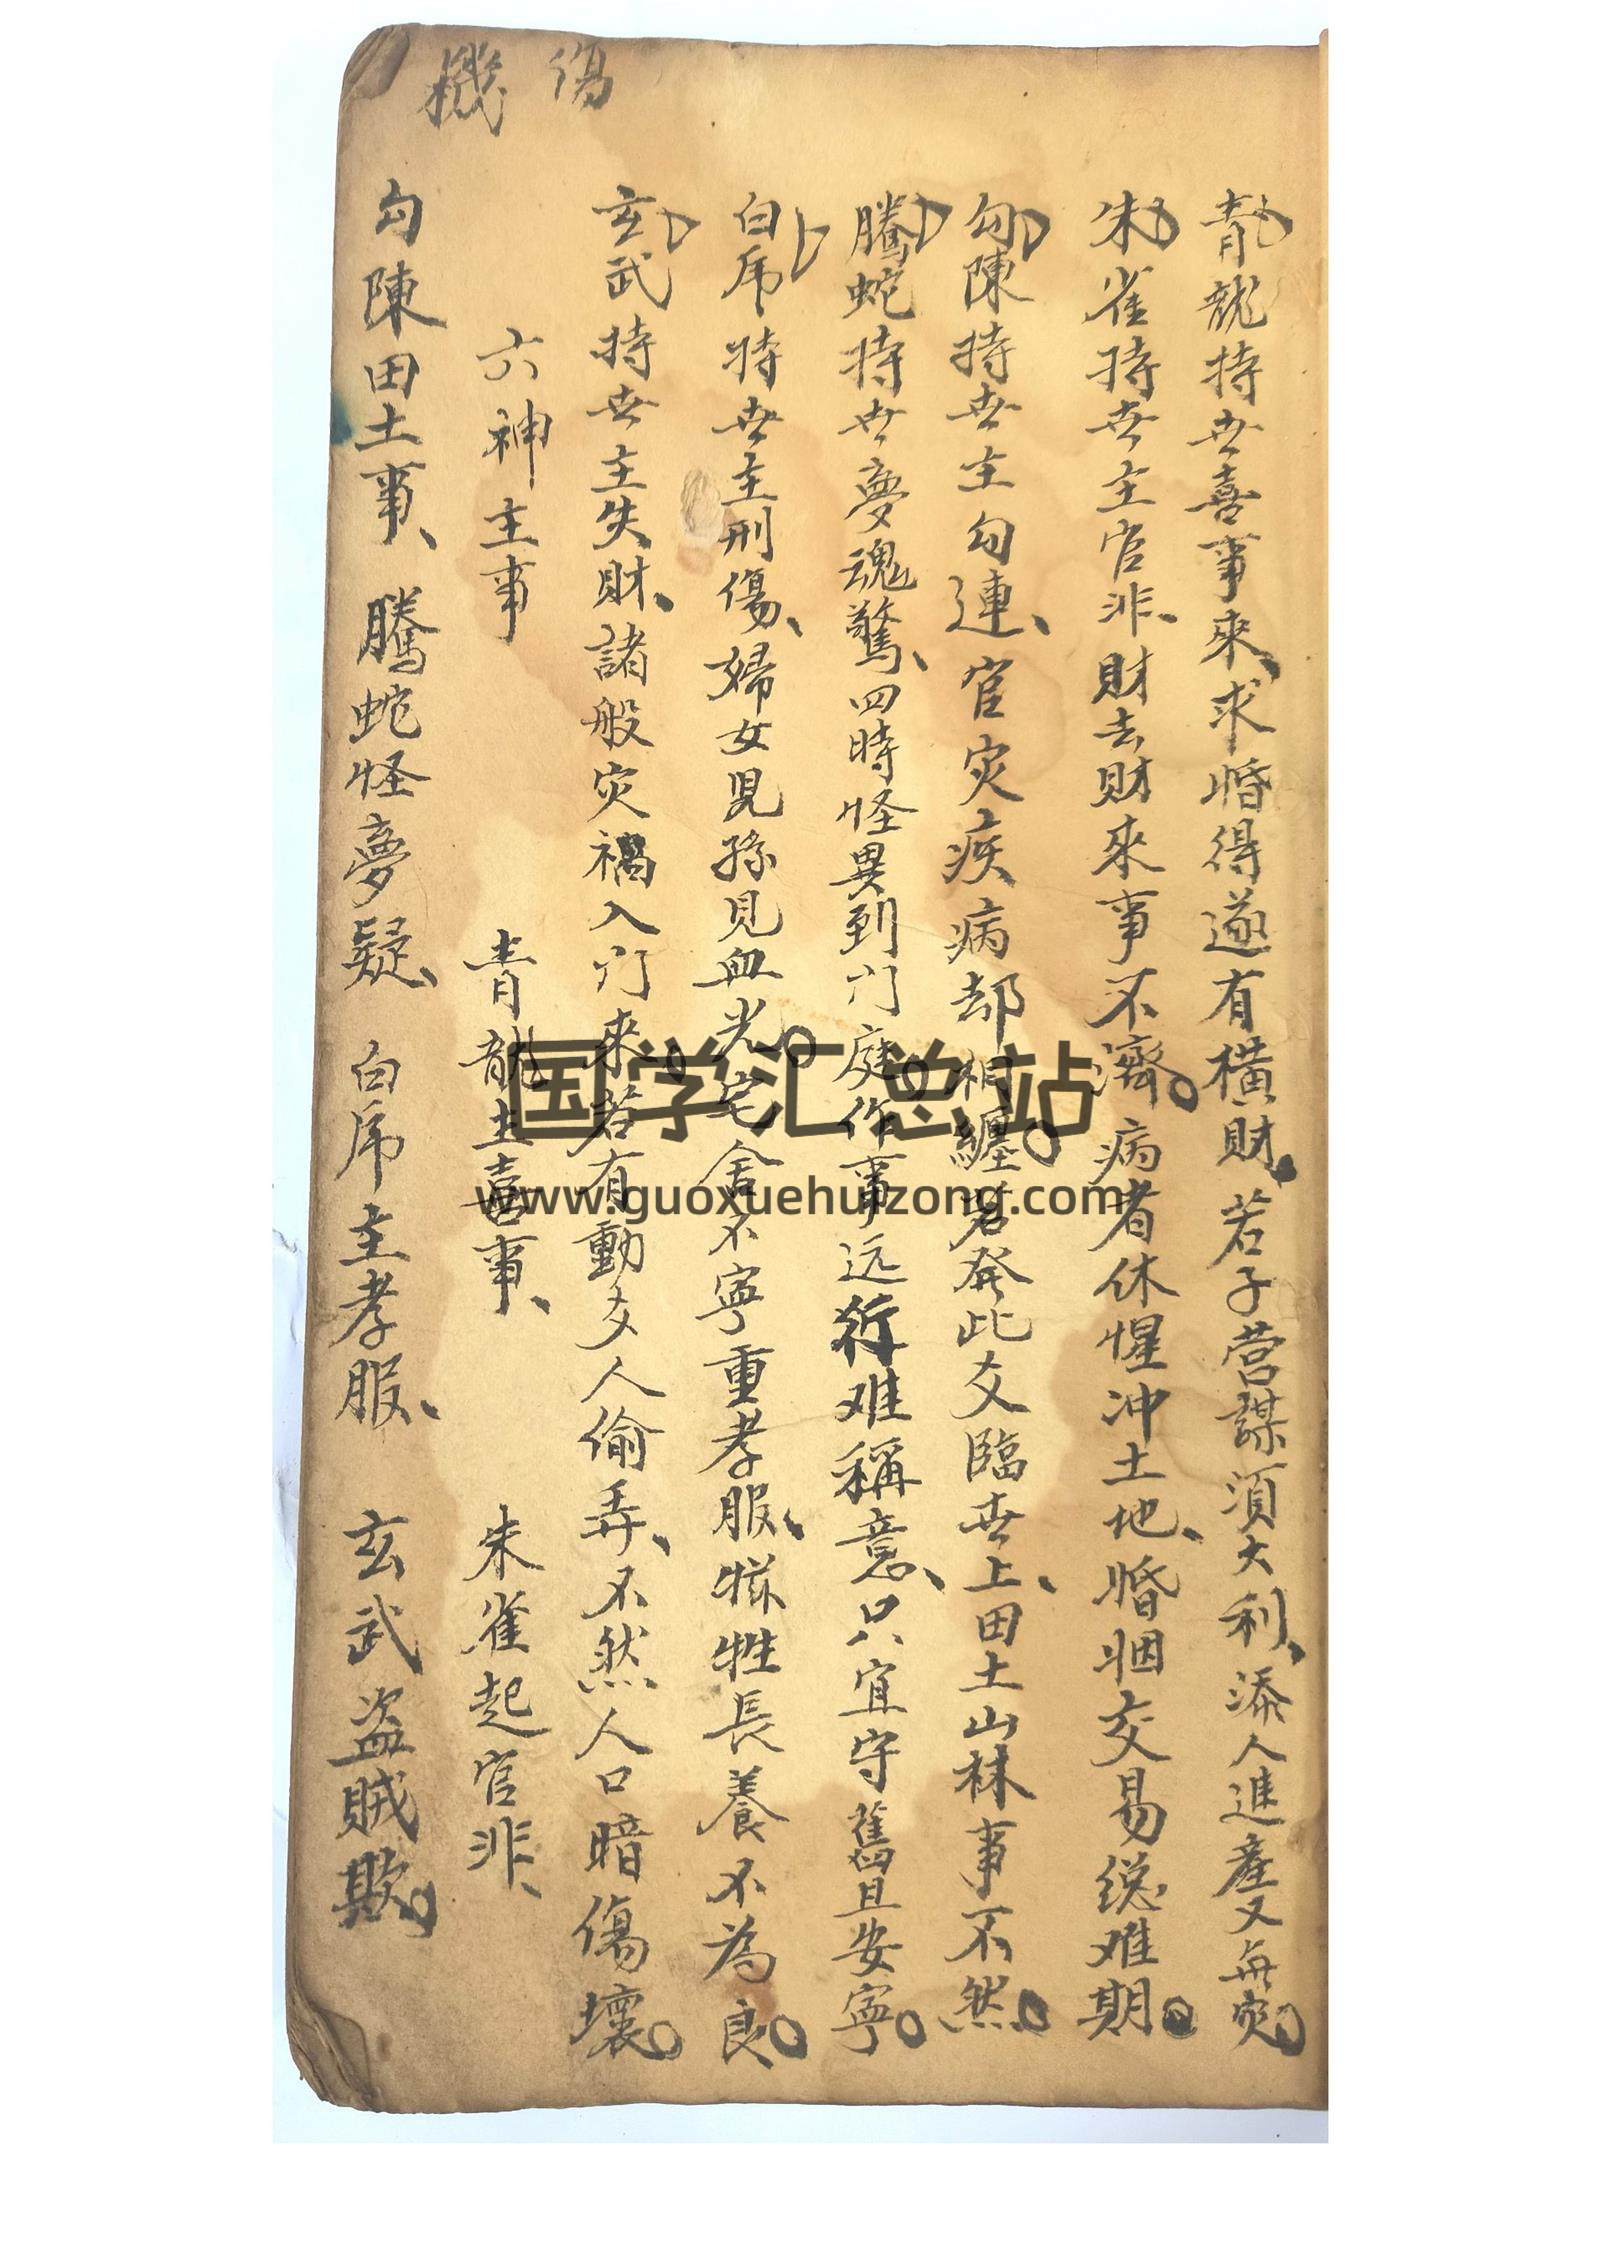 傷
機
青龍持世喜事來、求婚得遂有橫財。若子营謀須大利、添人進產又無灾。
朱雀持世主官非、財去財來事不濟。病者休惺冲土地、婚姻交易総难期。
勾陳持世主勾連、官灾疾病却相纏。若発此爻臨世上、田土山林事不然。
騰蛇持世夢魂驚、四時怪異到门庭。作事远行难稱意、只宜守舊且安寧。
白虎持世主刑傷、婦女児孫見血光。宅舍不寧重孝服、牲長養不為良。
玄武持世主失財、諸般灾禍入门來。若有動爻人偷弄、不然人口暗傷壞。
六神主事 青龍主喜事、 朱雀起官非、
勾陳田土事、 騰蛇怪夢疑、 白虎主孝服、 玄武盗贼欺。
国学汇总站
www.guoxuehuizong.com